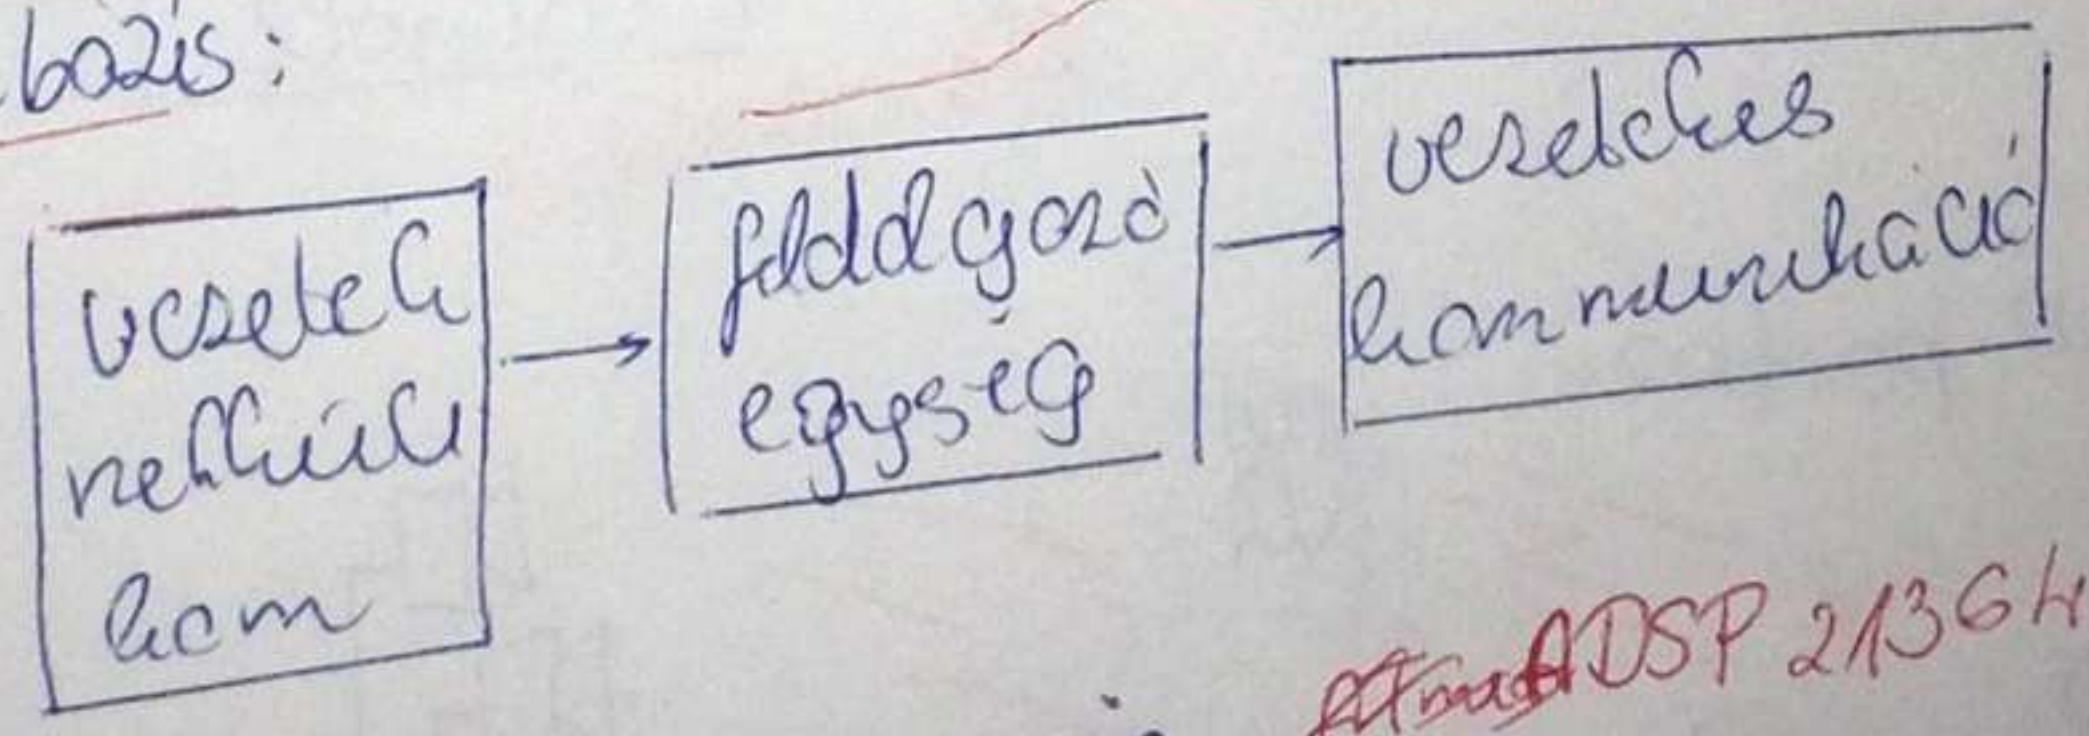 bázis:
vezeték
nélküli
kom
feldolgozó
egység
vezetékes
kommunikáció
ADSP 21364